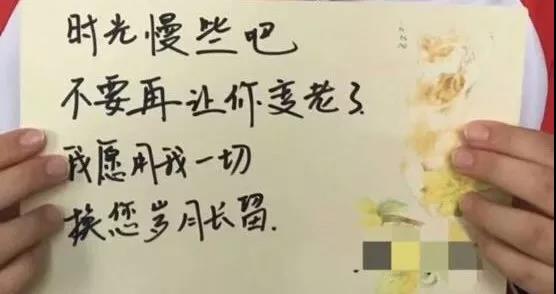 时光慢些吧
不要再让你变老了
我愿用我一切
换您岁月长留.